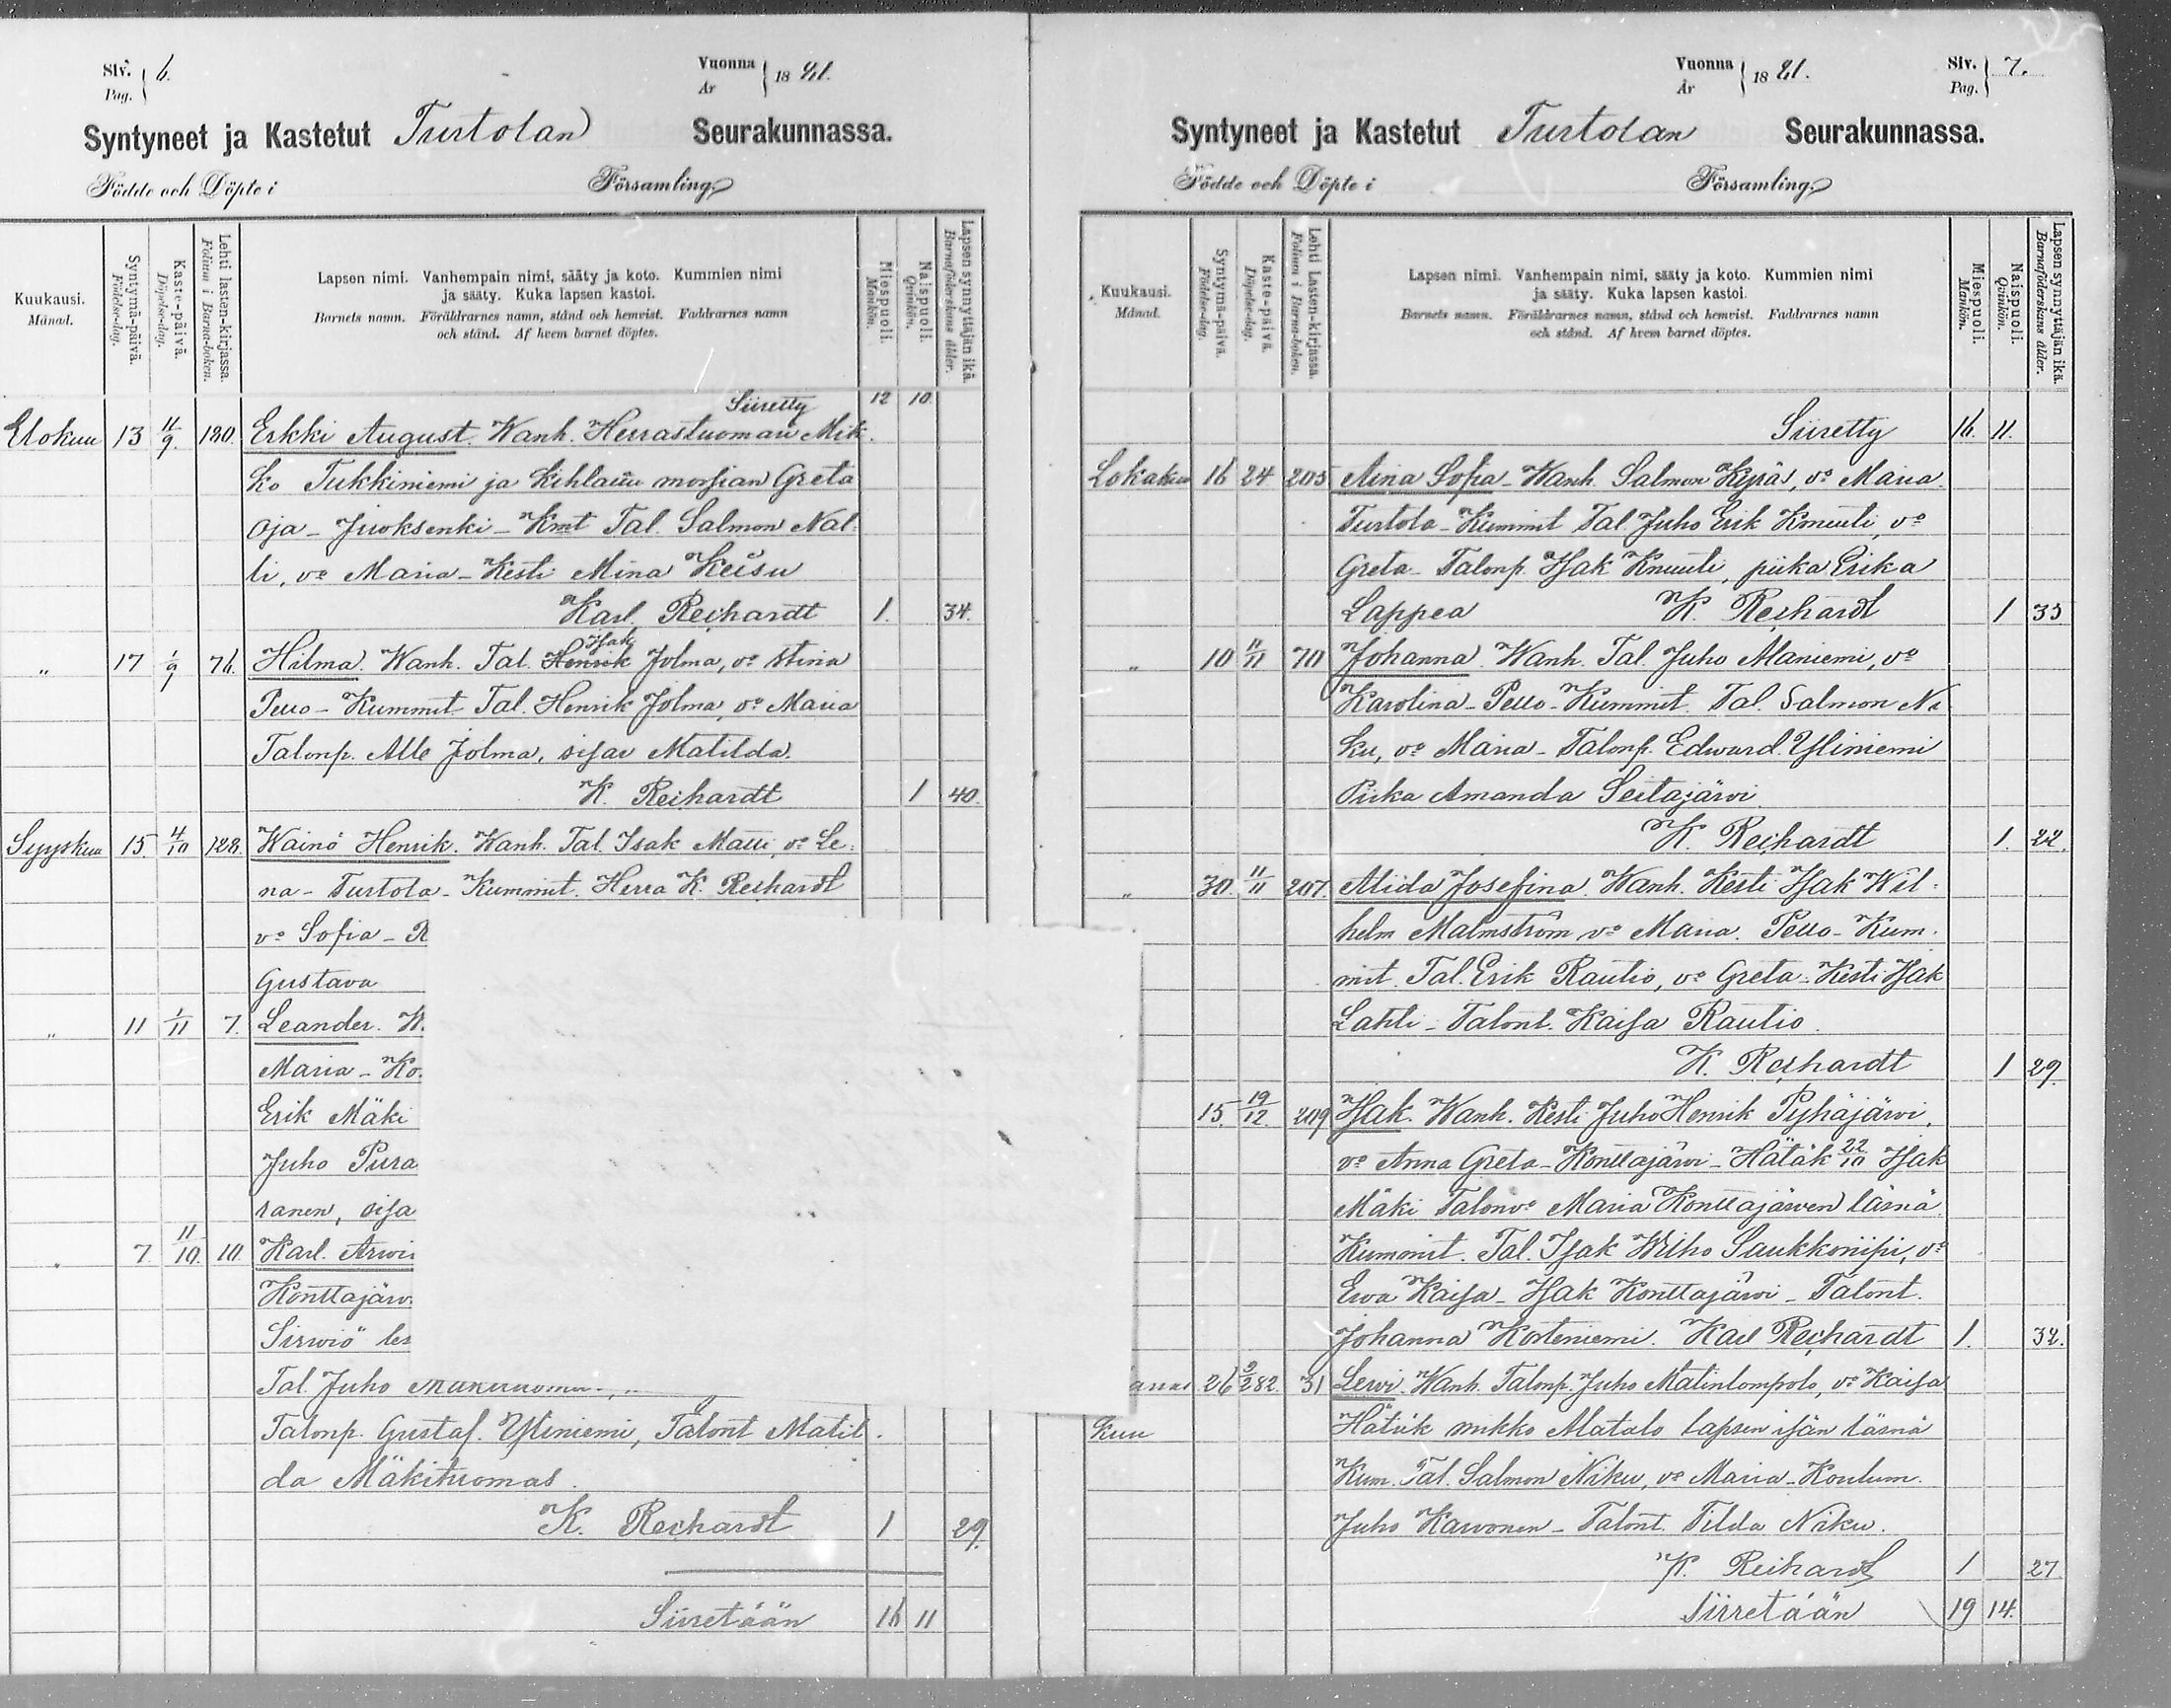 Siv. 6.
Pag.
Vuonna 1881.
År
Syntyneet ja Kastetut Turtolan Seurakunnassa.
Födde och Döpte i Församling.
Kuukausi.
Månad.
Syntymä-päivä.
Födelse-dag.
Kaste-päivä.
Döpelse-dag.
Lehti lasten-kirjassa.
Folium i Barna-boken.
Lapsen nimi. Vanhempain nimi, sääty ja koto. Kummien nimi
ja sääty. Kuka lapsen kastoi.
Barnets namn. Föräldrarnes namn, stånd och hemvist. Faddrarnes namn
och stånd. Af hvem barnet döptes.
Miespuoli.
Mankön.
Naispuoli.
Qvinkön.
Lapsen synnyttäjän ikä.
Barnaföderskans ålder.
Siirretty 12 10.
Elokuu 13 11/9. 180. Erkki August. Wanh. Herrastuoman Mik
ko Tukkiniemi ja kihlattu morsian Greta
Oja - Juoksenki - Kmt Tal. Salmon Nal-
li, vo Maria - Kesti Mina Keisu
Karl Reçhardt 1. 34.
" 17 1/9 76. Hilma. Wanh. Tal. Henrik Isak Jolma, vo Stina
Pello - Kummit Tal. Henrik Jolma, vo Maria
Talonp. Alle Jolma, sisar Matilda.
K. Reçhardt 1 40.
Syyskuu 15. 4/10 128. Wäinö Henrik. Wanh. Tal. Isak Matti, vo Le-
na - Turtola - Kummit. Herra K. Reçhardt
vo Sofia - R
Gustava
" 11 1/11 7. Leander. W.
Maria - Ko.
Erik Mäki
Juho Pura
ranen, sisa
" 7. 11/10. 10. Karl. Arwi
Konttajärv.
Sirwiö" les
Tal. Juho
Talonp. Gustaf. Yliniemi, Talont Matil
da Mäkituomas.
K. Rechardt 1 29.
Siirretään 16 11
Vuonna 1881.
År
Siv. 7.
Pag.
Syntyneet ja Kastetut Turtolan Seurakunnassa.
Födde och Döpte i Församling.
Kuukausi.
Månad.
Syntymä-päivä.
Födelse-dag.
Kaste-päivä.
Döpelse-dag.
Lehti Lasten-kirjassa.
Folium i Barna-boken.
Lapsen nimi. Vanhempain nimi, sääty ja koto. Kummien nimi
ja sääty. Kuka lapsen kastoi.
Barnets namn. Föräldrarnes namn, stånd och hemvist. Faddrarnes namn
och stånd. Af hvem barnet döptes.
Miespuoli.
Mankön.
Naispuoli.
Qvinkön.
Lapsen synnyttäjän ikä.
Barnaföderskans ålder.
Siirretty 16. 11.
Lokakuu 16 24 205 Aina Sofia - Wanh. Salmon Kyräs, vo Maria
Turtola - Kummit Tal. Juho Erik Knuuti, vo
Greta - Talonp. Isak Knuuti, piika Erika
Lappea K. Reçhardt 1 35
" 10 11/11 70 Johanna. Wanh. Tal. Juho Maniemi, vo
Karolina - Pello - Kummit. Tal. Salmon Ni
ku, vo Maria - Talonp. Edward Yliniemi
Piika Amanda Seitajärvi
K. Reçhardt 1. 22.
" 30. 11/11 207. Alida Josefina. Wanh. Kesti Isak Wil-
helm Malmström vo Maria. Pello - Kum-
mit. Tal. Erik Rautio, vo Greta - Kesti Isak
Lahti - Talont. Kaisa Rautio.
K. Reçhardt 1 29.
15. 19/12. 209 Isak. Wanh. Kesti Juho Henrik Pyhäjärvi,
vo Anna Greta - Konttajärvi - Hätäk 22/10 Isak
Mäki Talonvo Maria Konttajärven läsnä.
Kummit. Tal. Isak Wilho Saukkoriipi, vo
Ewa Kaisa - Isak Konttajärvi - Talont.
Johanna Korteniemi. Karl Reçhardt 1. 32.
26 2/2 82. 31 Lewi. Wanh. Talonp. Juho Matinlompolo, vo Kaisa
kuu Hätäk mikko Matalo lapsen isän läsnä
Kum. Tal. Salmon Niku, vo Maria - Koulum.
Juho Karvonen - Talont. Tilda Niku.
K. Reihardt 1 27
Siirretään 19 14.